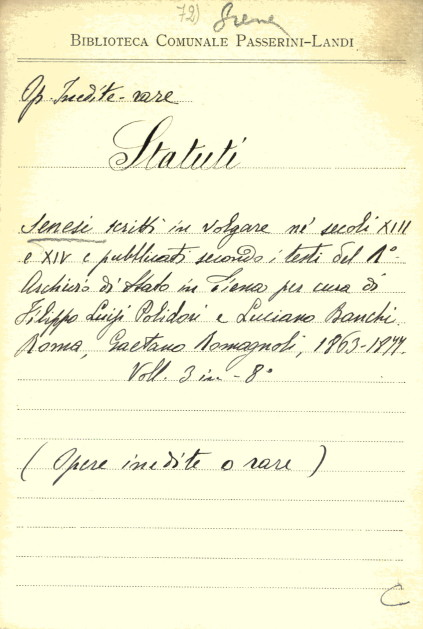 72)
BIBLIOTECA COMUNALE PASSERINI-LANDI
Op. Inedite-rare
Statuti
Senesi scritti in volgare ne' secoli XIII
e XIV e pubblicati secondo i testi del R°
Archivio di Stato in Siena per cura di
Filippo Luigi Polidori e Luciano Banchi.
Roma, Gaetano Romagnoli, 1863-1877.
Voll. 3 in-8°
(Opere inedite o rare)
C